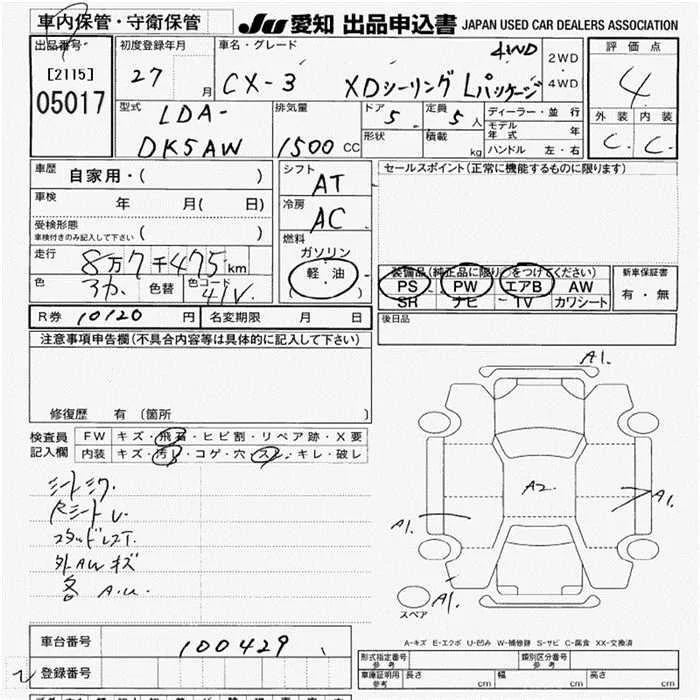 車内保管・守衛保管
JU 愛知 出品申込書 JAPAN USED CAR DEALERS ASSOCIATION
出品番号
[2115]
05017
初度登録年月
27 月
車名・グレード
4WD
CX-3 XDツーリング Lパッケージ
2WD
4WD
評価点
4
外装 内装
C. C.
型式
LDA-
DK5AW
排気量
1500 CC
ドア 5
形状
定員 5 人
積載 kg
ディーラー・並行
モデル年式 年
ハンドル 左・右
車歴 自家用・( )
車検 年 月( 日)
受検形態
車検付きのみ記入して下さい ( )
走行 8万7千475km
色 アカ 色替 色コード 41V
シフト
AT
冷房
AC
燃料
ガソリン
軽・油
( )
セールスポイント(正常に機能するものに限ります)
装備品(純正品に限り○をつけてください)
PS PW エアB AW
SR ナビ TV カワシート
新車保証書
有・無
R券 10120 円 名変期限 月 日
後日品
注意事項申告欄(不具合内容等は具体的に記入して下さい)
修復歴 有(箇所
検査員記入欄
FW キズ・飛石・ヒビ割・リペア跡・X要
内装 キズ・汚レ・コゲ・穴・スレ・キレ・破レ
シートシワ.
スタッドレスT.
外AWキズ
各 A.U.
A1.
A2.
A1.
A1.
A1.
スペア
A-キズ E-エクボ U-凹み W-補修跡 S-サビ C-腐食 XX-交換済
車台番号 100429
登録番号
形式指定番号 参考
類別区分番号 参考
車庫証明用 参考 長さ cm 幅 cm 高さ cm